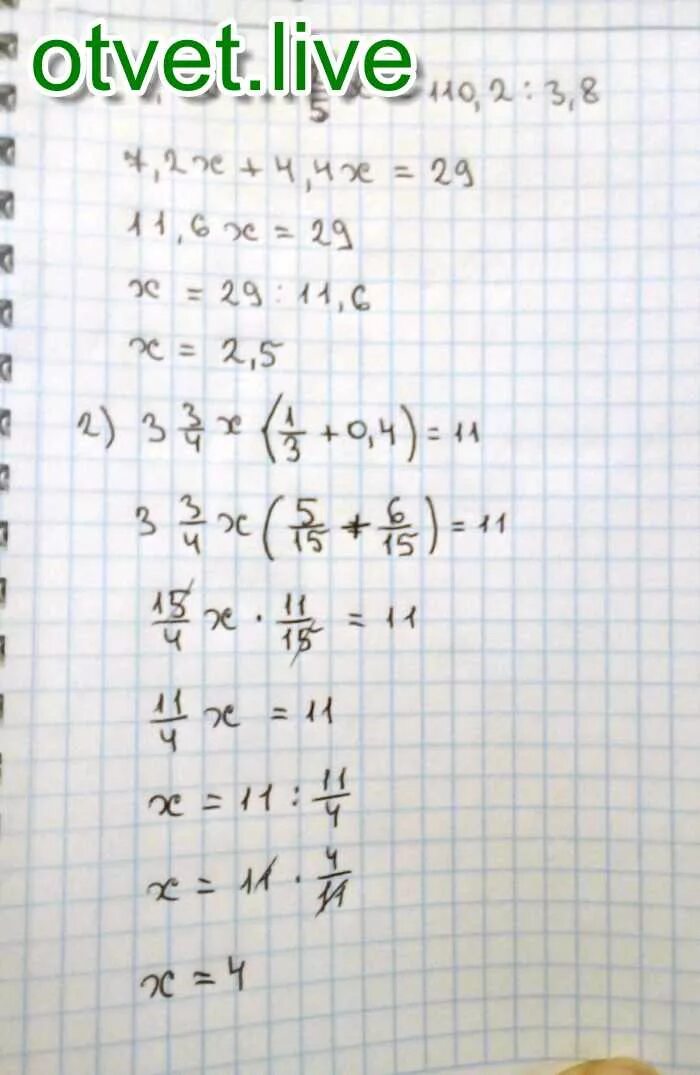 otvet.live
5 110,2 : 3,8
7,2x + 4,4x = 29
11,6x = 29
x = 29 : 11,6
x = 2,5
2) 3 3/4 x (1/3 + 0,4) = 11
3 3/4 x (5/15 + 6/15) = 11
15/4 x · 11/15 = 11
11/4 x = 11
x = 11 : 11/4
x = 11 · 4/11
x = 4